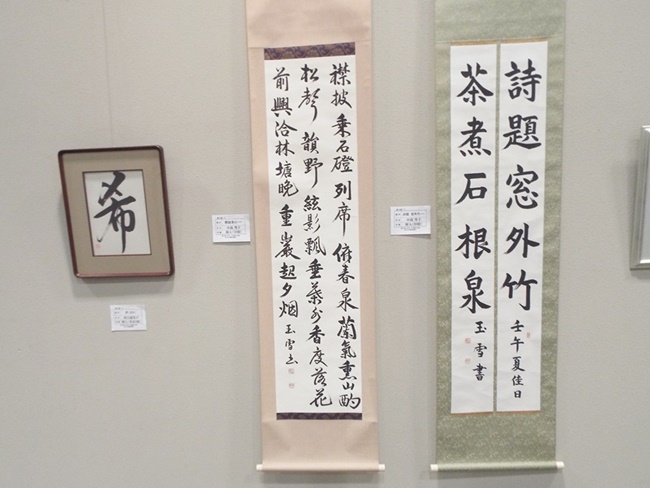 希
襟披乗石磴列席俯春泉蘭氣熏山酌
松聲韻野絃影飄垂葉外香度落花
前興洽林塘晩重巖起夕烟
玉雪書
詩題窓外竹
壬午夏佳日
茶煮石根泉
玉雪書